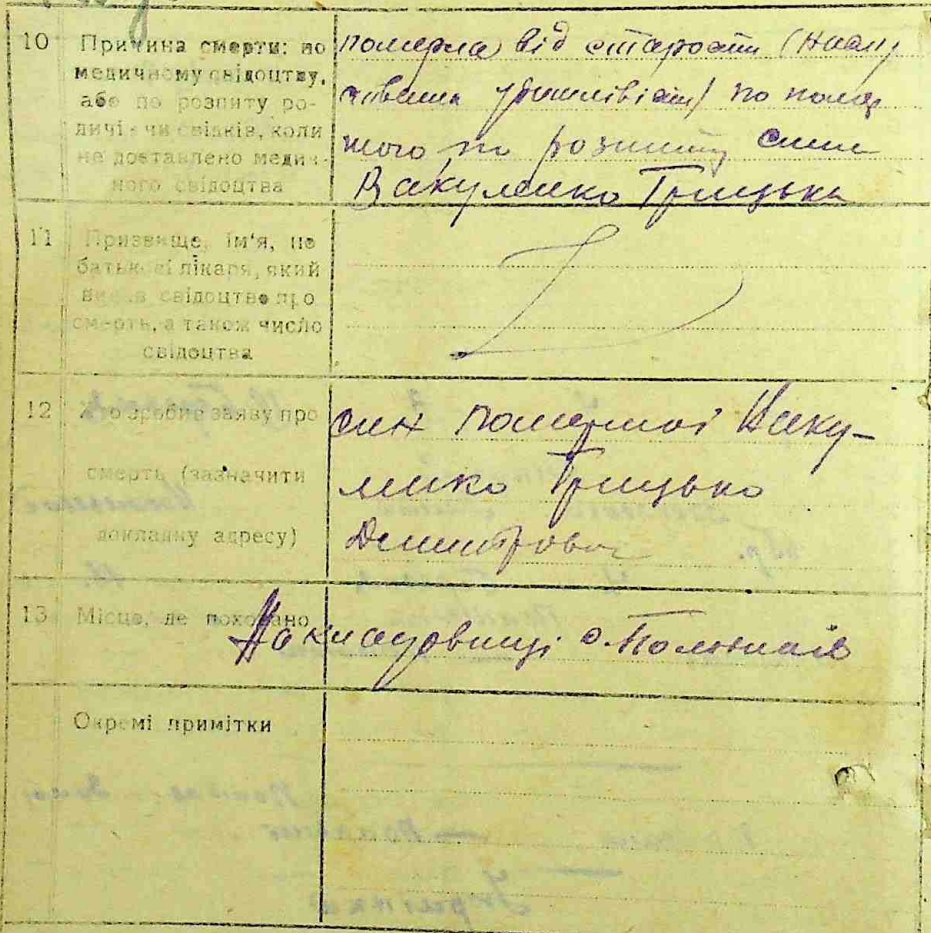 10 Причина смерти: по
медичному свідоцтву,
або по розпиту ро-
дичів чи свідків, коли
не доставлено медич-
ного свідоцтва
померла від старости
по
по розпиту сина
Вакуленко Грицька
11 Призвище, ім'я, по
батькові лікаря, який
видав свідоцтво про
смерть, а також число
свідоцтва
12 Хто зробив заяву про
смерть (зазначити
докладну адресу)
син померлої Ваку-
ленко Грицько
Дмитрович
13 Місце, де поховано
На кладовищі с.
Окремі примітки